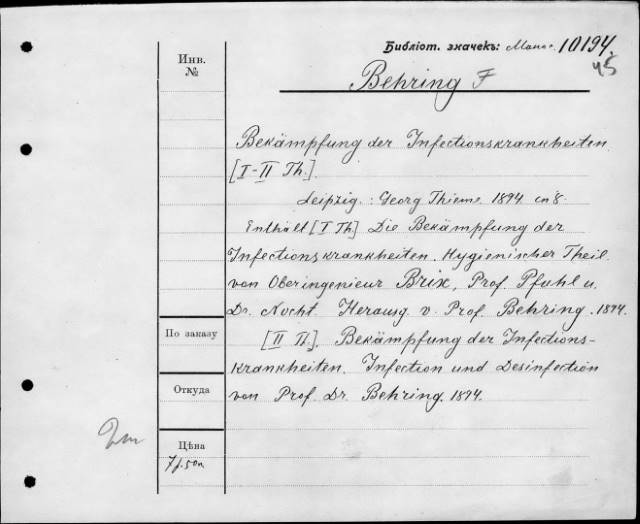 Библіот. значекъ: 10194.
45
Behring F
Инв.
№
Bekämpfung der Infectionskrankheiten
[I-II Th.].
Leipzig. : Georg Thieme 1894 in 8.
Enthält [I Th] Die Bekämpfung der
Infectionskrankheiten. Hygienischer Theil
von Oberingenieur Brix, Prof. Pfuhl u.
Dr. Nocht. Herausg. v. Prof. Behring. 1894.
[II Th.]. Bekämpfung der Infections-
krankheiten. Infection und Desinfection
von Prof. Dr. Behring. 1894.
По заказу
Откуда
Цѣна